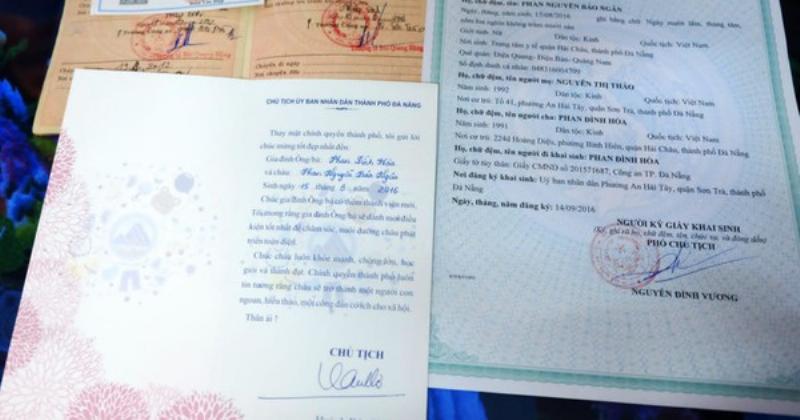 CHỦ TỊCH ỦY BAN NHÂN DÂN THÀNH PHỐ ĐÀ NẴNG
Thay mặt chính quyền thành phố, tôi gửi lời
chúc mừng tốt đẹp nhất đến:
Gia đình Ông/bà: Phan Đình Hòa
và cháu: Phan Nguyễn Bảo Ngân
Sinh ngày 15 tháng 8 năm 2016
Chúc gia đình Ông/bà có thêm thành viên mới.
Tôi mong rằng gia đình Ông/bà sẽ dành mọi điều
kiện tốt nhất để chăm sóc, nuôi dưỡng cháu phát
triển toàn diện.
Chúc cháu luôn khỏe mạnh, chóng lớn, học
giỏi và thành đạt. Chính quyền thành phố luôn
tin tưởng rằng cháu sẽ trở thành một người con
ngoan, hiếu thảo, một công dân có ích cho xã hội.
Thân ái !
CHỦ TỊCH
Họ, chữ đệm, tên: PHAN NGUYỄN BẢO NGÂN
Ngày, tháng, năm sinh: 15/08/2016 ghi bằng chữ: Ngày mười lăm, tháng tám,
năm hai nghìn không trăm mười sáu
Giới tính: Nữ Dân tộc: Kinh Quốc tịch: Việt Nam
Nơi sinh: Trung tâm y tế quận Hải Châu, thành phố Đà Nẵng
Quê quán: Điện Quang- Điện Bàn- Quảng Nam
Số định danh cá nhân:
Họ, chữ đệm, tên người mẹ: NGUYỄN THỊ THẢO
Năm sinh: 1992 Dân tộc: Kinh Quốc tịch: Việt Nam
Nơi cư trú: Tổ 41, phường An Hải Tây, quận Sơn Trà, thành phố Đà Nẵng
Họ, chữ đệm, tên người cha: PHAN ĐÌNH HÒA
Năm sinh: 1991 Dân tộc: Kinh Quốc tịch: Việt Nam
Nơi cư trú: 224đ Hoàng Diệu, phường Bình Hiên, quận Hải Châu, thành phố Đà Nẵng
Họ, chữ đệm, tên người đi khai sinh: PHAN ĐÌNH HÒA
Giấy tờ tùy thân: Giấy CMND số 201571687, Công an TP. Đà Nẵng
Nơi đăng ký khai sinh: Uỷ ban nhân dân Phường An Hải Tây, quận Sơn Trà, thành phố
Đà Nẵng
Ngày, tháng, năm đăng ký: 14/09/2016
NGƯỜI KÝ GIẤY KHAI SINH
(Ký, ghi rõ họ, chữ đệm, tên, chức vụ và đóng dấu)
PHÓ CHỦ TỊCH
NGUYỄN ĐÌNH VƯƠNG